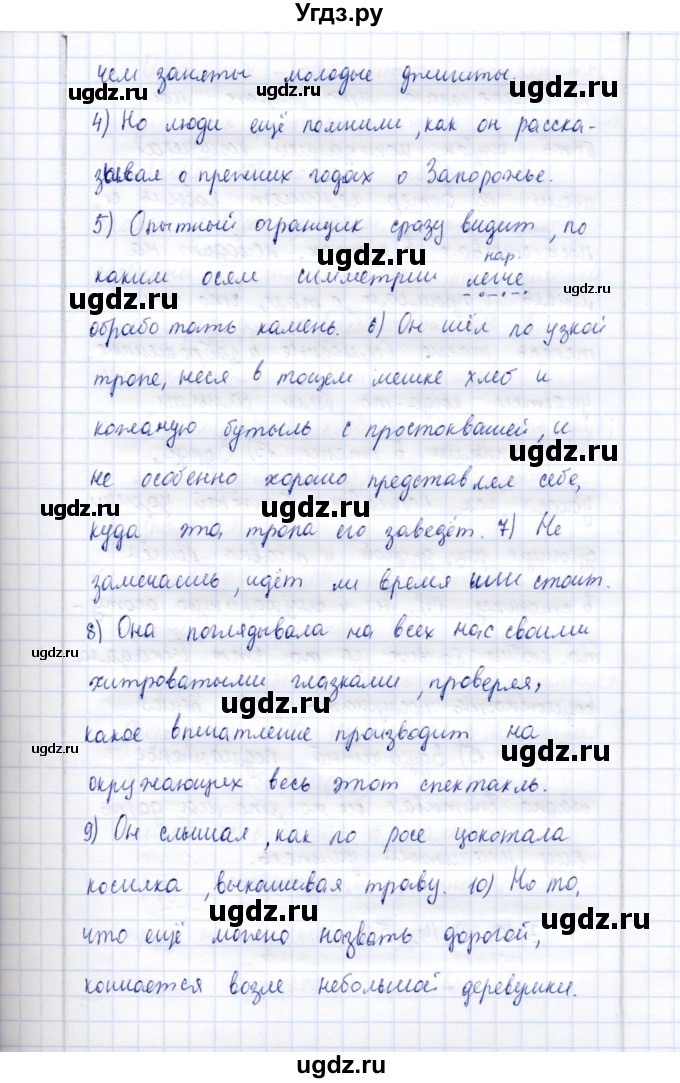 Угдз.ру
чем заняты молодые джигиты.
ugdz.ru
ugdz.ru
ugdz.ru
4) Но люди ещё помнили, как он расска-
зывал о прежних годах о Запорожье.
5) Опытный огранщик сразу видит, по
ugdz.ru
нар.
каким осям симметрии легче
ugdz.ru
ugdz.ru
обработать камень. 6) Он шёл по узкой
тропе, неся в тощем мешке хлеб и
кожаную бутыль с простоквашей, и
ugdz.ru
не особенно хорошо представлял себе,
ugdz.ru
ugdz.ru
куда эта тропа его заведёт. 7) Не
замечаешь, идёт ли время или стоит.
8) Она поглядывала на всех нас своими
ugdz.ru
хитроватыми глазками, проверяя,
ugdz.ru
какое впечатление производит на
ugdz.ru
ugdz.ru
окружающих весь этот спектакль.
9) Он слышал, как по росе цокотала
косилка, выкашивая траву. 10) Но то,
ugdz.ru
ugdz.ru
что ещё можно назвать дорогой,
кончается возле небольшой деревушки.
ugdz.ru